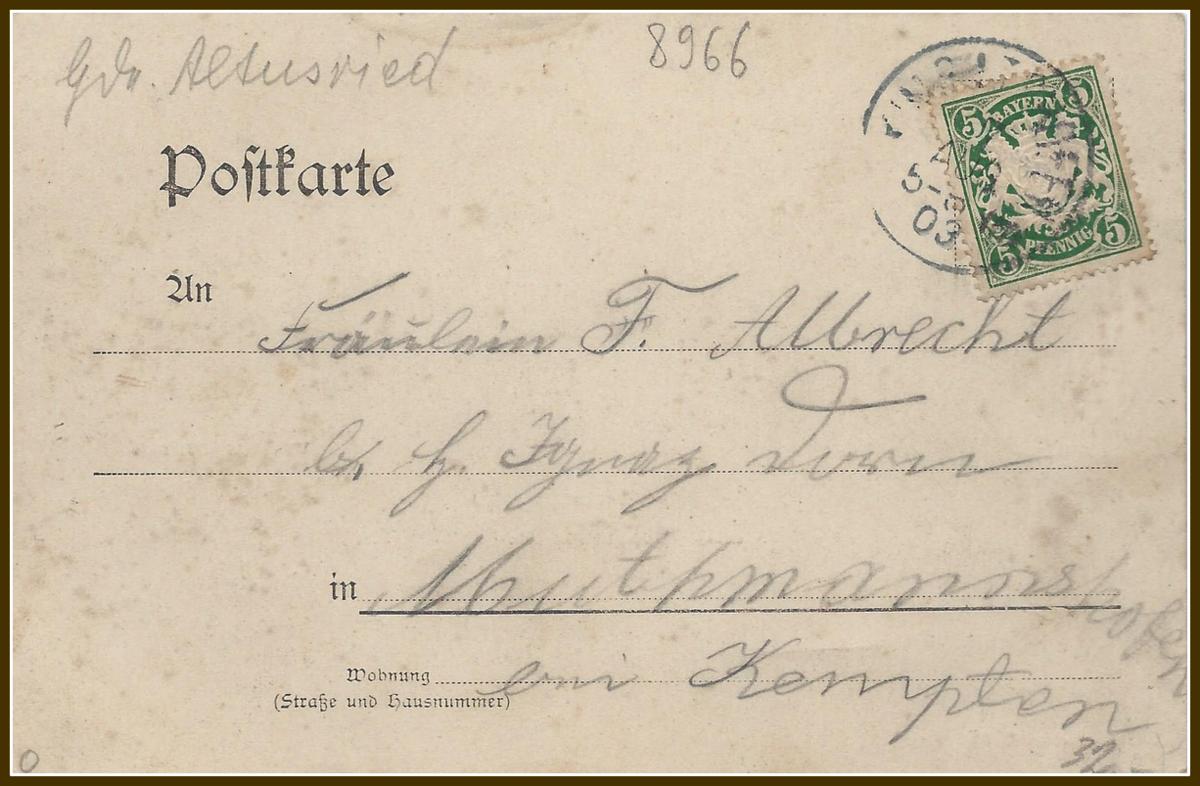 Gde. Altusried
8966
Postkarte
BAYERN
5 5
5 5
PFENNIG
03
An
Fräulein F. Albrecht
b. H. Ignaz Dorn
in Muthmannshofen
Wohnung bei Kempten
(Straße und Hausnummer)